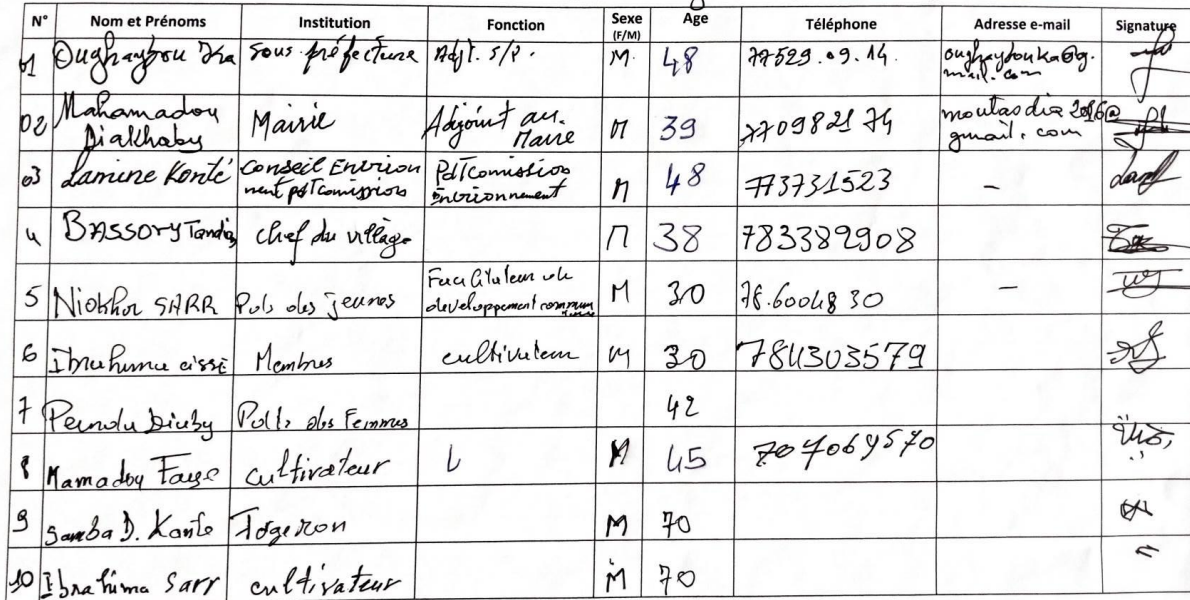 N° Nom et Prénoms Institution Fonction Sexe (F/M) Age Téléphone Adresse e-mail Signature
01 Oughaybou Ka Sous préfecture Adjt. S/P. M 48 77529.09.14. oughaybouka@g.
mail.com
02 Mahamadou Mairie Adjoint au M 39 7709821 74 moutasdia2016@
Diakhaby Maire gmail.com
03 Lamine Konté Conseil Envirion Pdt comission M 48 773731523 -
nent pdt comission Environnement
4 BASSORY Tandia chef du village M 38 783389908
5 Niokhor SARR des jeunes developpement M 30 78.6004830 -
6 Ibrahima cissé Membres cultivateur M 30 784303579
7 des Femmes 42
8 Mamadou Faye cultivateur M 45 707069570
9 Samba D. Konte M 70
10 Ibrahima Sarr cultivateur M 70